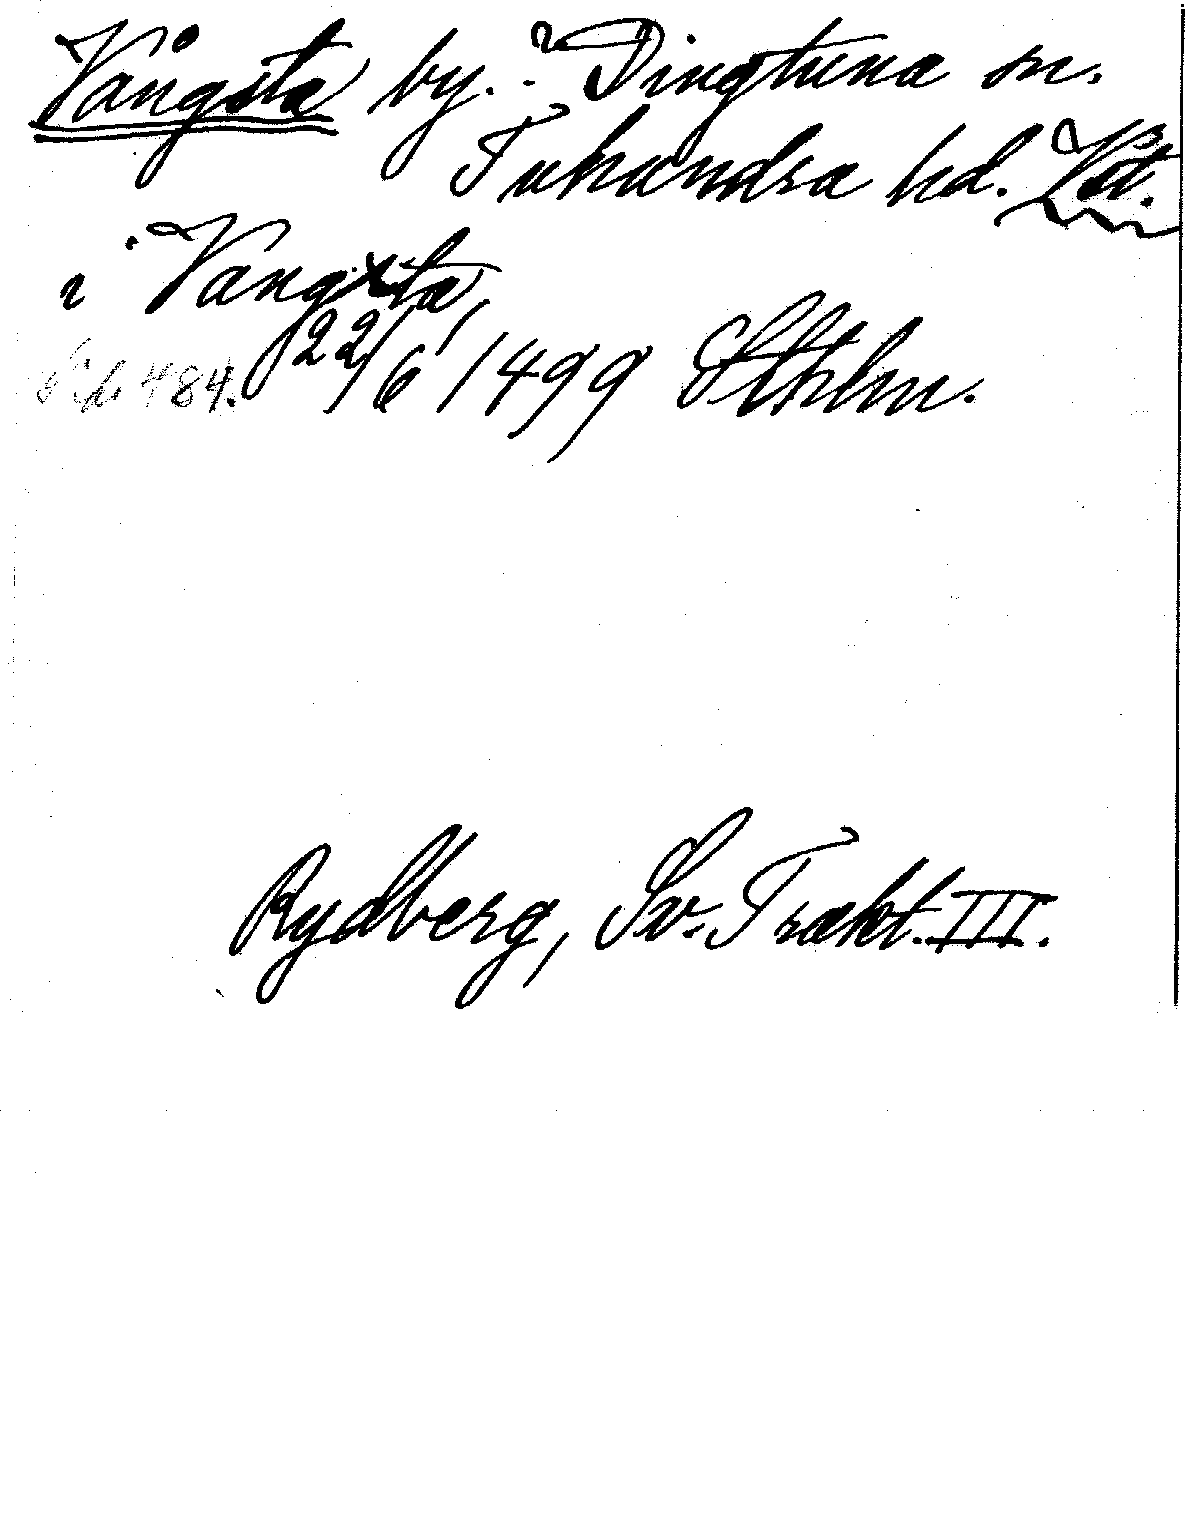 Vångsta by. - Dingtuna sn.
Tuhundra hd. Vstm.
i Vangxta,
22/6 1499 Sthlm.
484.
Rydberg, Sv. Trakt. III.